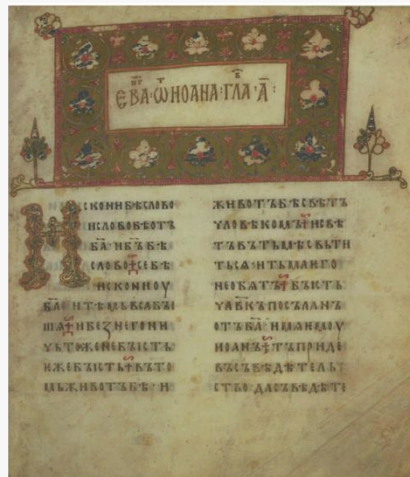 ЕВА҃·Ѿ ИОАНА·ГЛА҃·А҃:
ИСКОНИ БѢ СЛОВО
И СЛОВО БѢ ОТЪ
БА҃ · И БЪ҃ БѢ
СЛОВО ⁜ СЕ БѢ
ИСКОНИ ОУ
БА҃ · И ТѢМЬ ВЬСА БЫ
ШѦ ⁜ И БЕЗ НЕГО НИ
ЧЬТОЖЕ НЕ БЫСТЬ ·
ѤЖЕ БЫСТЬ ⁜ ВЪ ТО
МЬ ЖИВОТЪ БѢ · И
ЖИВОТЪ БѢ СВѢТЪ
ЧЛОВѢКОМЪ ⁜ И СВѢ
ТЪ ВЪ ТЬМѢ СВЬТИ
ТЬСѦ · И ТЬМА ѤГО
НЕ ОБѦТЪ ⁜ БЫСТЬ
ЧЛ҃ВКЪ ПОСЪЛАНЪ
ОТЪ БА҃ · ИМѦ ѤМОУ
ИОАНЪ ⁜ ТЪ ПРИДЕ
ВЪ СЪВѢДѢТЕЛЬ
СТВО · ДА СЪВѢДѢТЕ